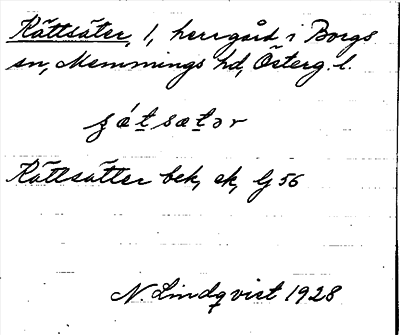 Kättsäter, 1, herrgård i Borgs
sn, Memmings hd, Österg. l.
Kättsätter bek, ek, G 56
N. Lindqvist 1928